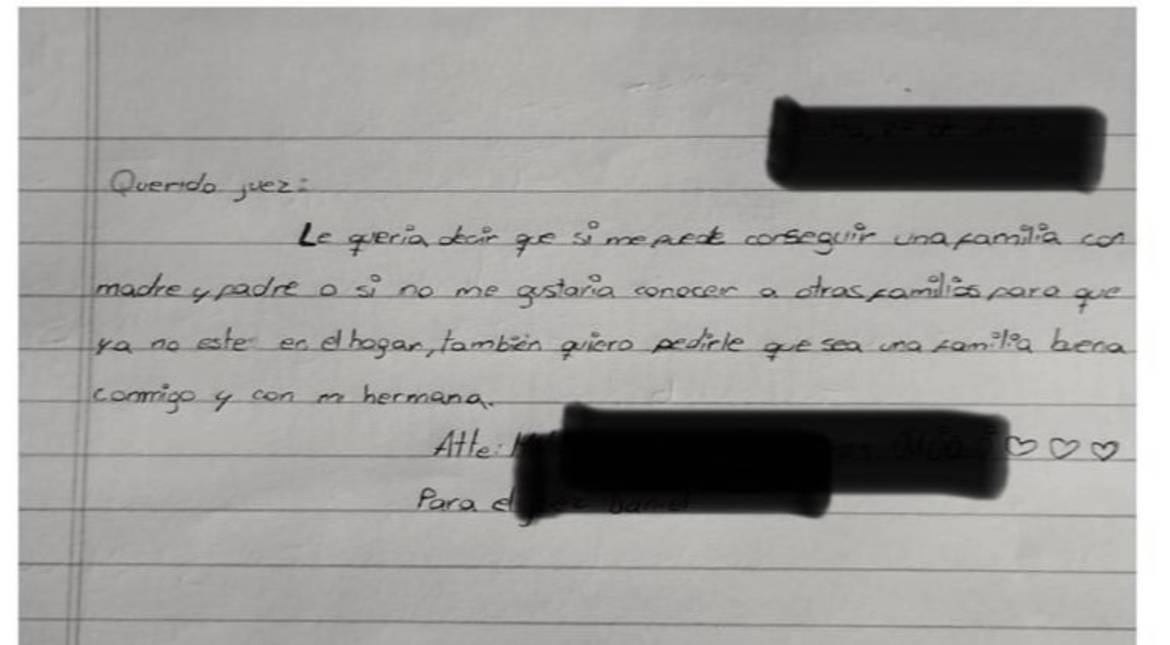 Querido juez:
Le queria decir que si me puede conseguir una familia con
madre y padre o si no me gustaria conocer a otras familias para que
ya no este en el hogar, también quiero pedirle que sea una familia buena
conmigo y con mi hermana.
Atte:
Para el